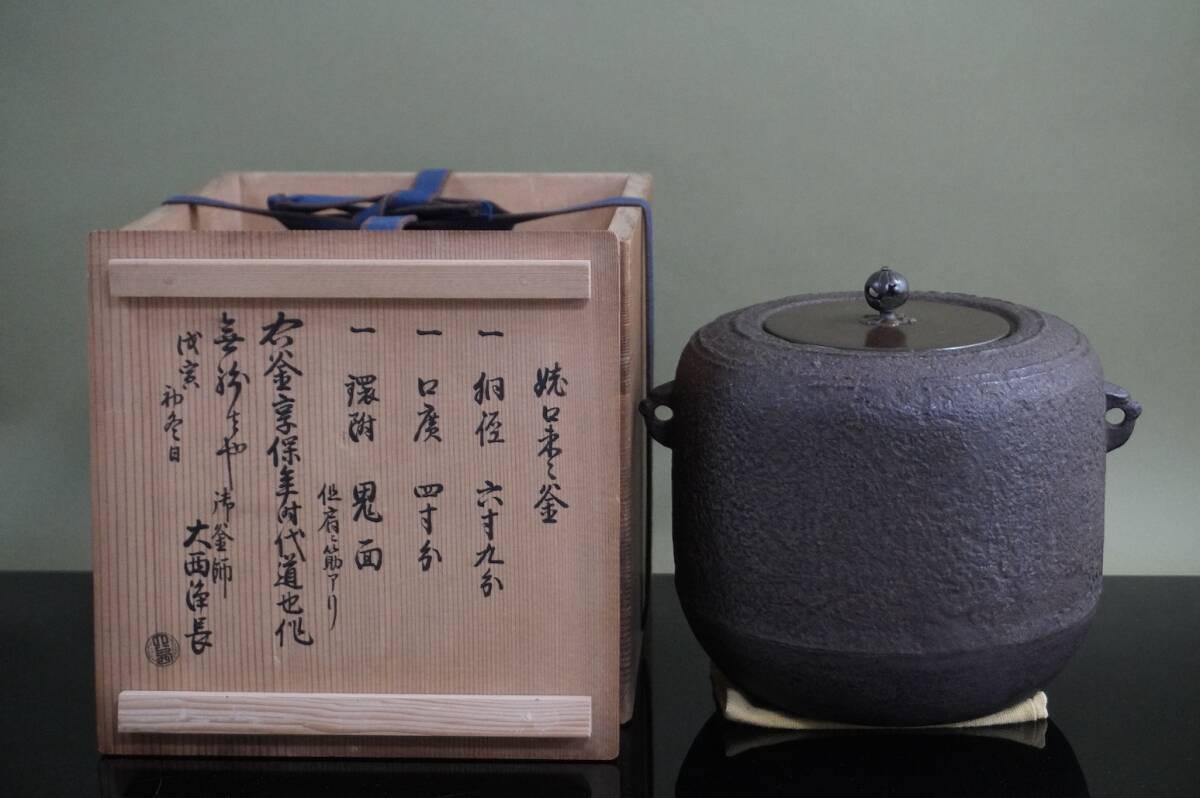 焼口棗釜
一 胴径 六寸九分
一 口廣 四寸分
一 環附 鬼面
但肩ニ筋アリ
右釜享保年時代道也作
無紛者也
戊寅 初冬日
御釜師
大西浄長